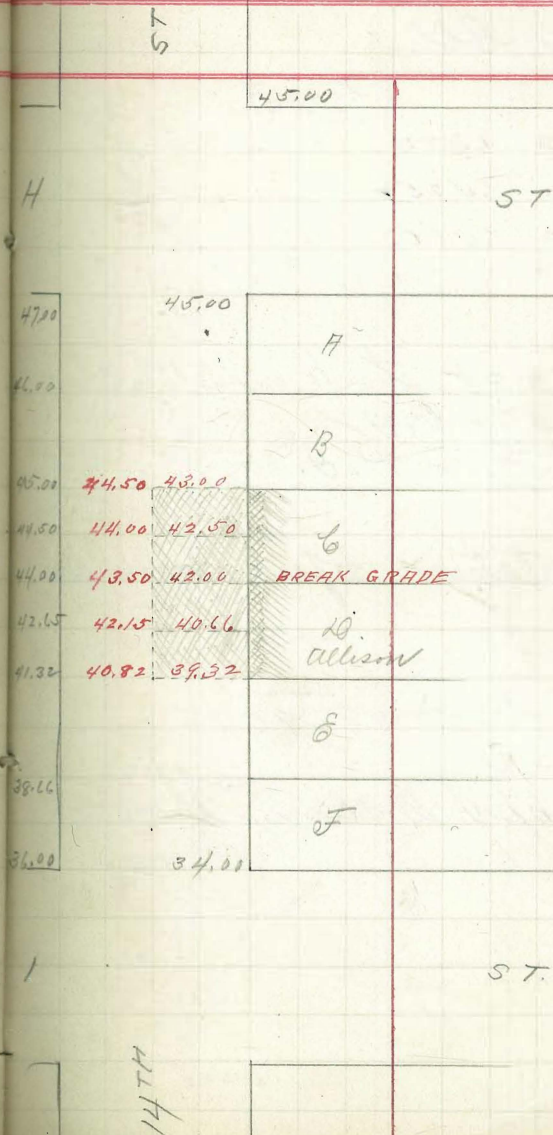 ST
45.00
H ST
47.00 45.00
A
46.00
B
45.00 44.50 43.00
44.50 44.00 42.50
C
44.00 43.50 42.00 BREAK GRADE
42.65 42.15 40.66
D
Allison
41.32 40.82 39.32
E
38.66
F
36.00 34.00
I ST.
14TH